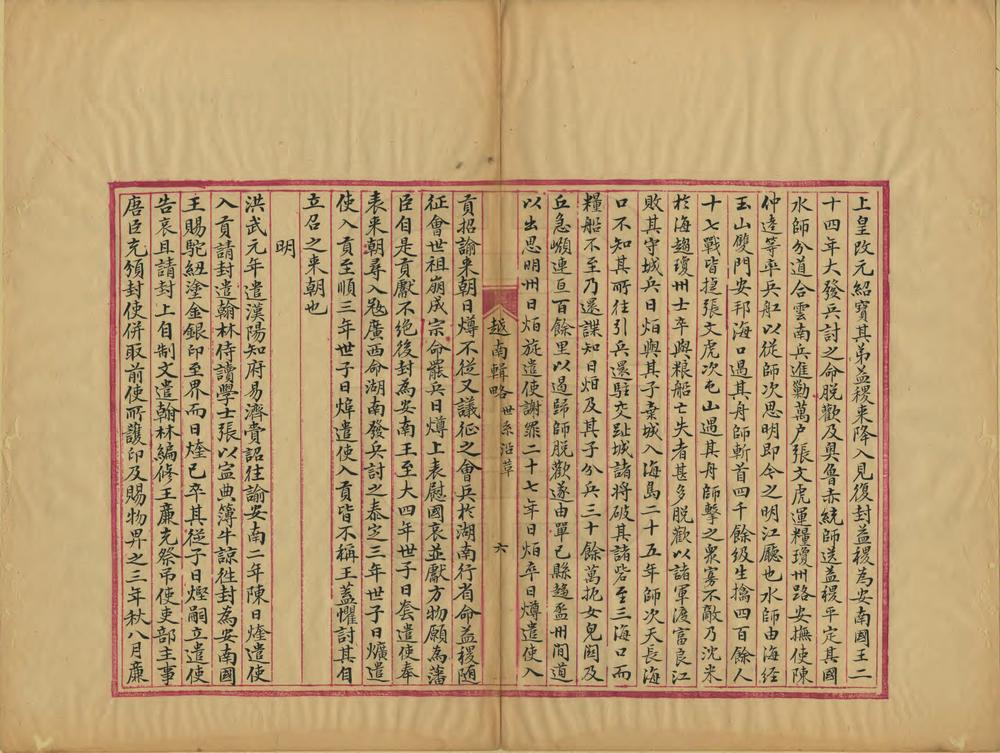 上皇改元紹寶其弟益稷来降入見復封益稷為安南國王二
十四年大發兵討之命脫歡及奥魯赤統師送益稷平定其國
水師分道合雲南兵進勦萬户張文虎運糧瓊州路安撫使陳
仲逵等率兵舡以從師次思明即今之明江廳也水師由海經
玉山雙門安邦海口遇其舟師斬首四千餘级生擒四百餘人
十七戰皆捷張文虎次屯山遇其舟師擊之衆寡不敵乃沈米
於海趨瓊州士卒與粮船亡失者甚多脫歡以諸軍渡富良江
敗其守城兵日烜與其子棄城入海島二十五年師次天長海
口不知其所往引兵還駐交趾城諸將破其諸砦至三海口而
糧船不至乃還諜知日烜及其子分兵三十餘萬扼女兒關及
丘急嶺連亘百餘里以遏歸師脫歡遂由單巳縣趨盝州間道
以出思明州日烜旋遣使謝罪二十七年日烜卒日燇遣使入
越南輯略 世系沿革 六
貢招諭来朝日燇不從又議征之會兵於湖南行省命益稷随
征會世祖崩成宗命罷兵日燇上表慰國哀並獻方物願為藩
臣自是貢獻不絶後封為安南王至大四年世子日㷃遣使奉
表来朝尋入冦廣西命湖南發兵討之泰定三年世子日爌遣
使入貢至順三年世子日焯遣使入貢皆不稱王蓋懼討其自
立召之来朝也
明
洪武元年遣漢陽知府易濟賫詔往諭安南二年陳日煃遣使
入貢請封遣翰林侍讀學士張以寧典簿牛諒徃封為安南國
王賜駝紐塗金銀印至界而日煃已卒其從子日熞嗣立遣使
告哀且請封上自制文遣翰林編修王廉充祭弔使吏部主事
唐臣充頒封使併取前使所護印及賜物畀之三年秋八月廉